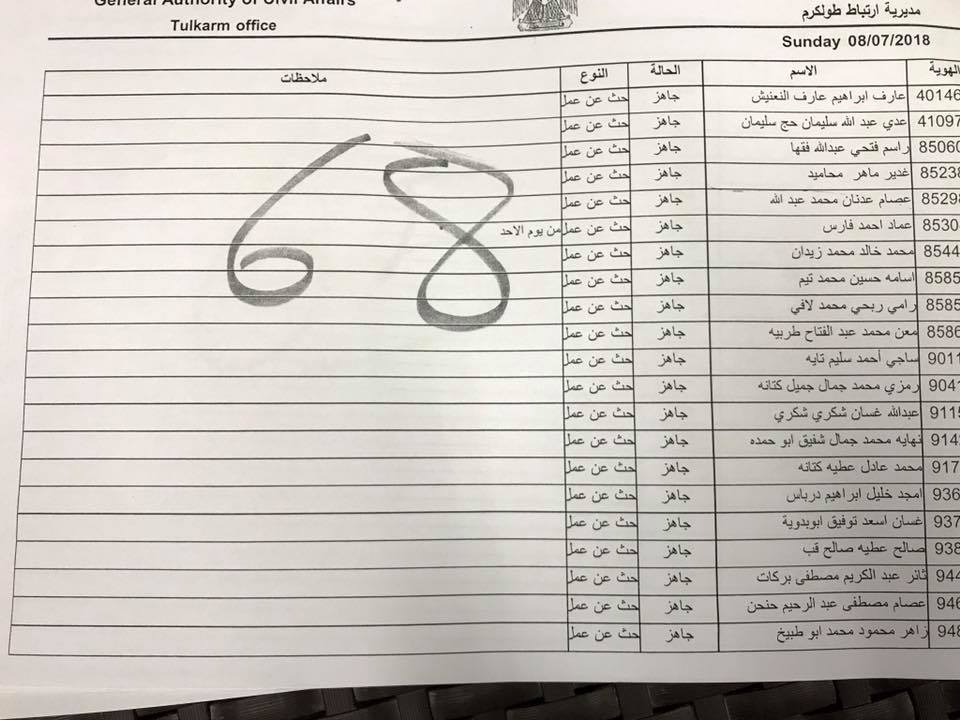 General Authority of Civil Affairs
Tulkarm office
مديرية ارتباط طولكرم
Sunday 08/07/2018
الهوية الاسم الحالة النوع ملاحظات
40146 عارف ابراهيم عارف النعنيش جاهز حث عن عمل
41097 عدي عبد الله سليمان حج سليمان جاهز حث عن عمل
85060 راسم فتحي عبدالله فقها جاهز حث عن عمل
85238 غدير ماهر محاميد جاهز حث عن عمل
85298 عصام عدنان محمد عبد الله جاهز حث عن عمل
8530 عماد احمد فارس جاهز حث عن عمل من يوم الاحد
8544 محمد خالد محمد زيدان جاهز حث عن عمل
8585 اسامه حسين محمد تيم جاهز حث عن عمل
8585 رامي ربحي محمد لافي جاهز حث عن عمل
8586 معن محمد عبد الفتاح طربيه جاهز حث عن عمل
9011 ساجي أحمد سليم تايه جاهز حث عن عمل
9041 رمزي محمد جمال جميل كتانه جاهز حث عن عمل
9115 عبدالله غسان شكري شكري جاهز حث عن عمل
9142 نهايه محمد جمال شفيق ابو حمده جاهز حث عن عمل
917 محمد عادل عطيه كتانه جاهز حث عن عمل
936 امجد خليل ابراهيم درباس جاهز حث عن عمل
937 غسان اسعد توفيق ابوبدوية جاهز حث عن عمل
938 صالح عطيه صالح قب جاهز حث عن عمل
944 ثائر عبد الكريم مصطفى بركات جاهز حث عن عمل
946 عصام مصطفى عبد الرحيم حنحن جاهز حث عن عمل
948 زاهر محمود محمد ابو طبيخ جاهز حث عن عمل
68